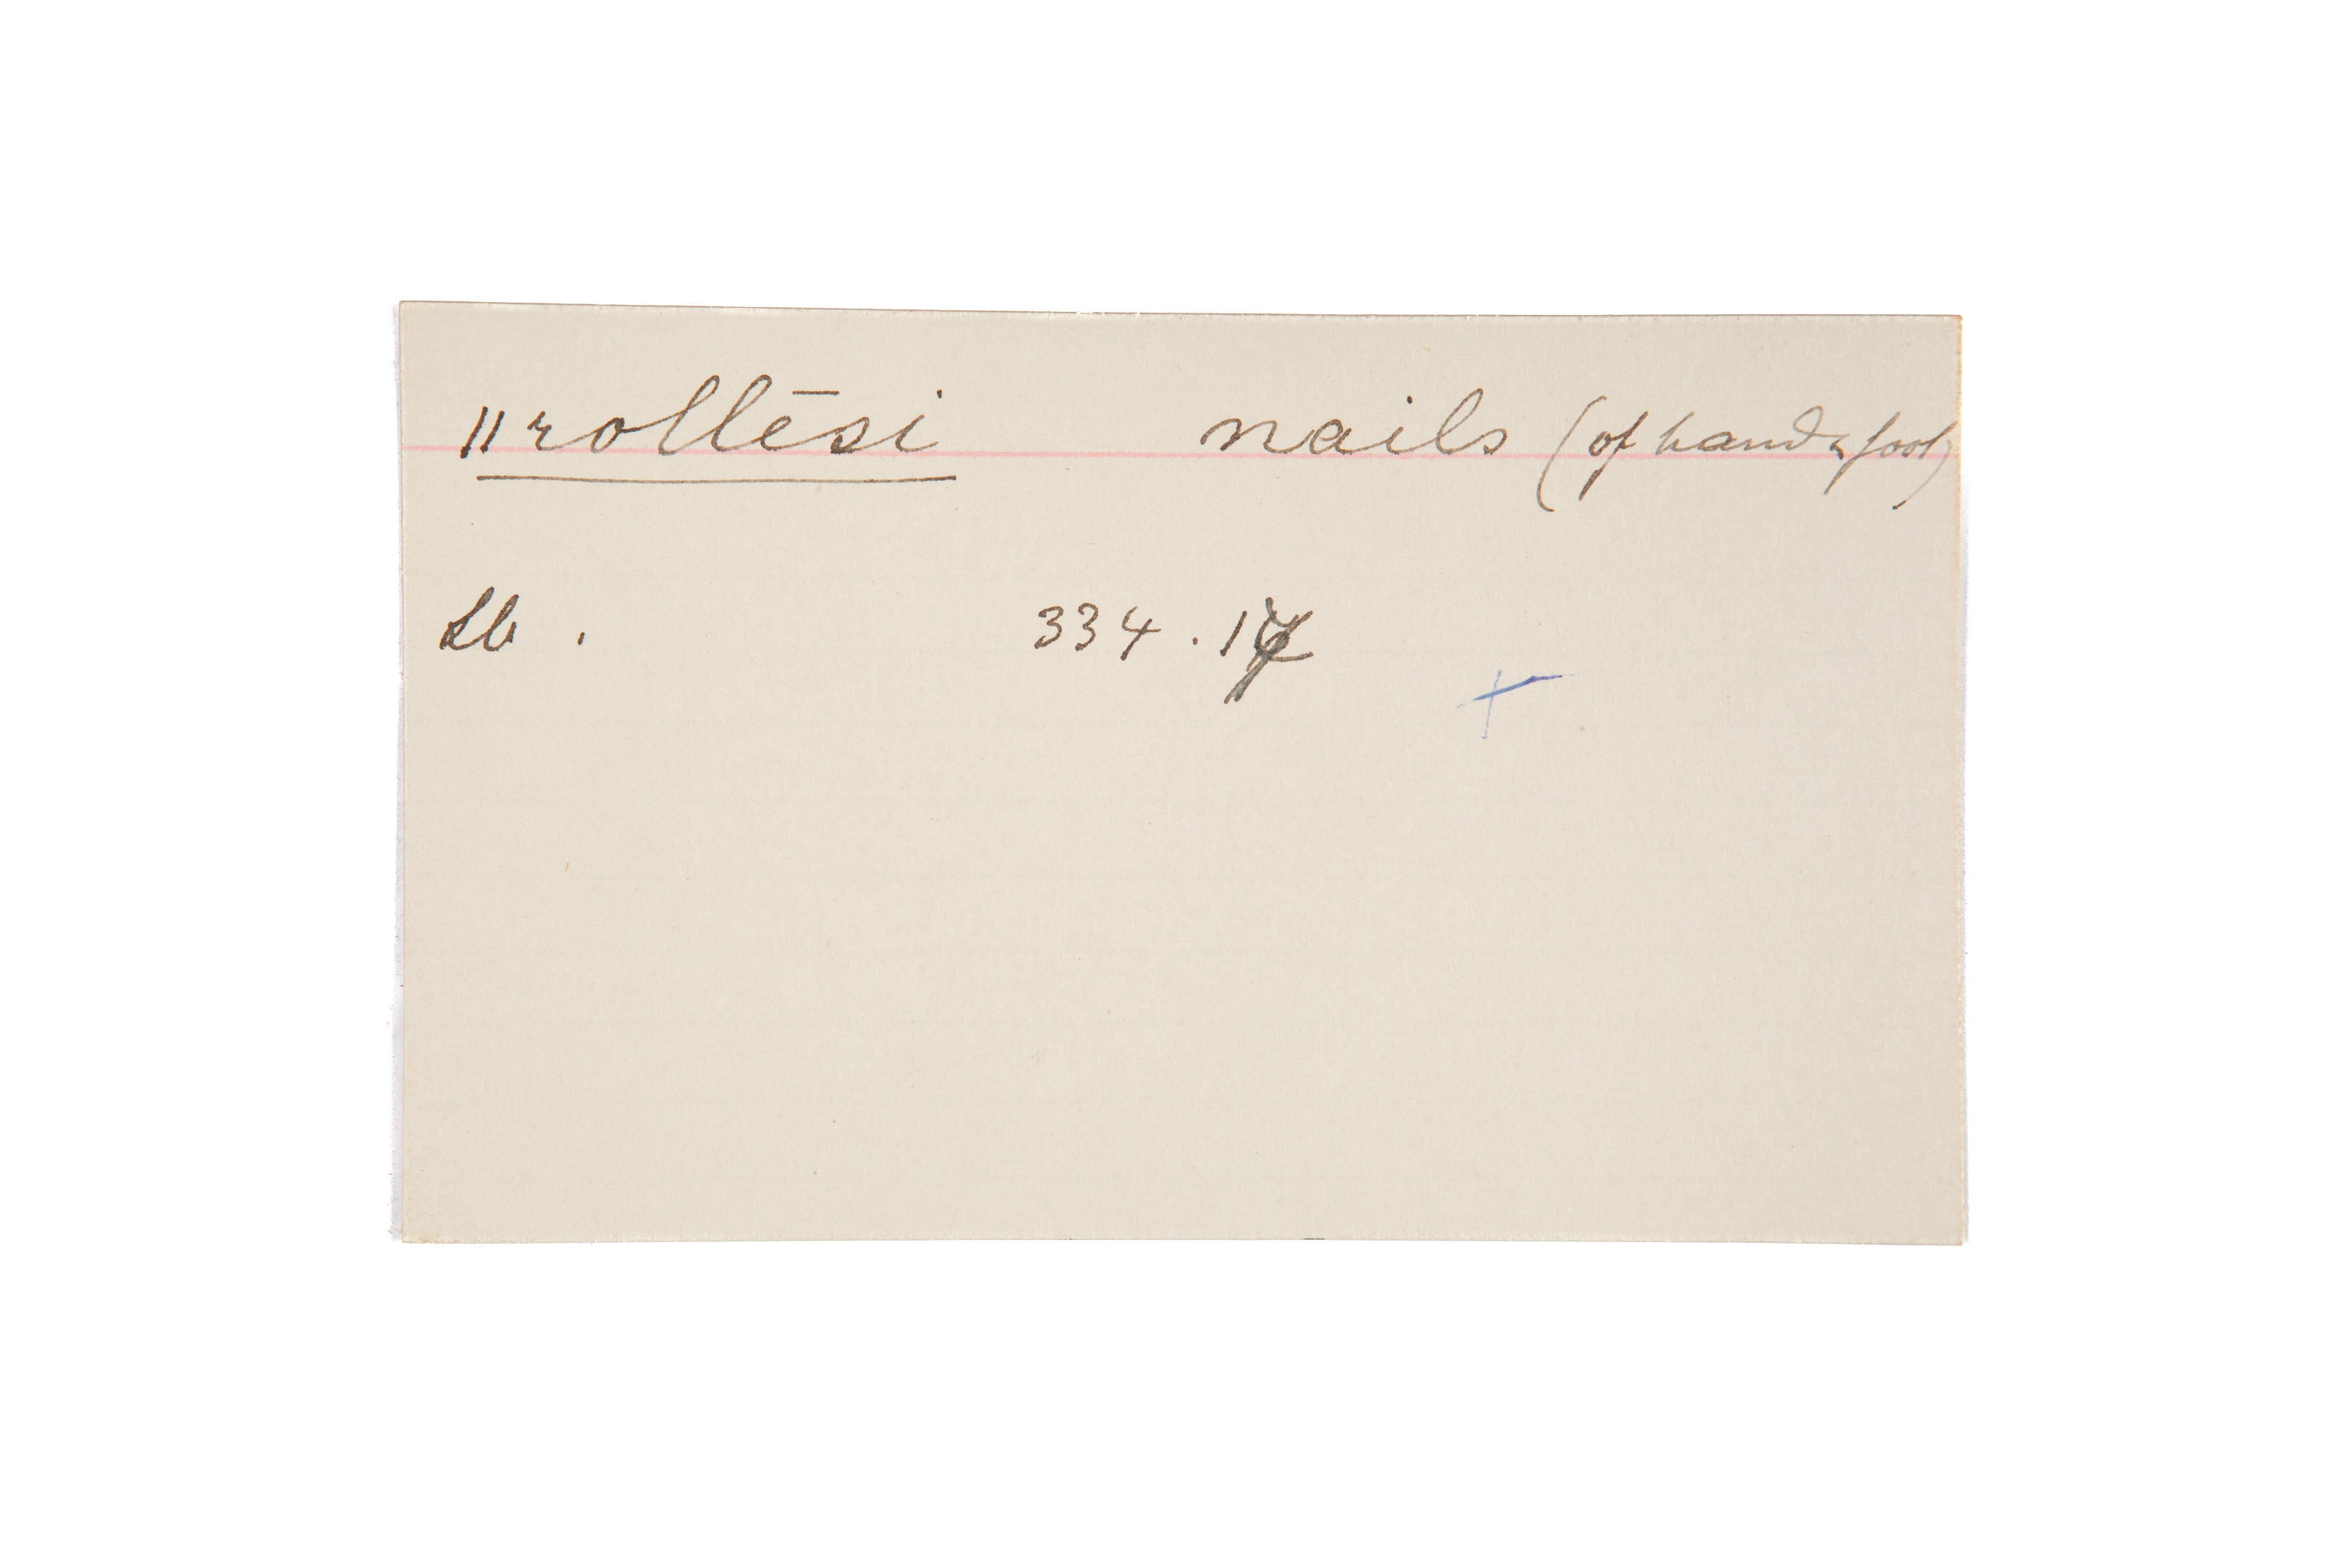 ǁrollēsi nails (of hand & foot)
Lb. 334.
+